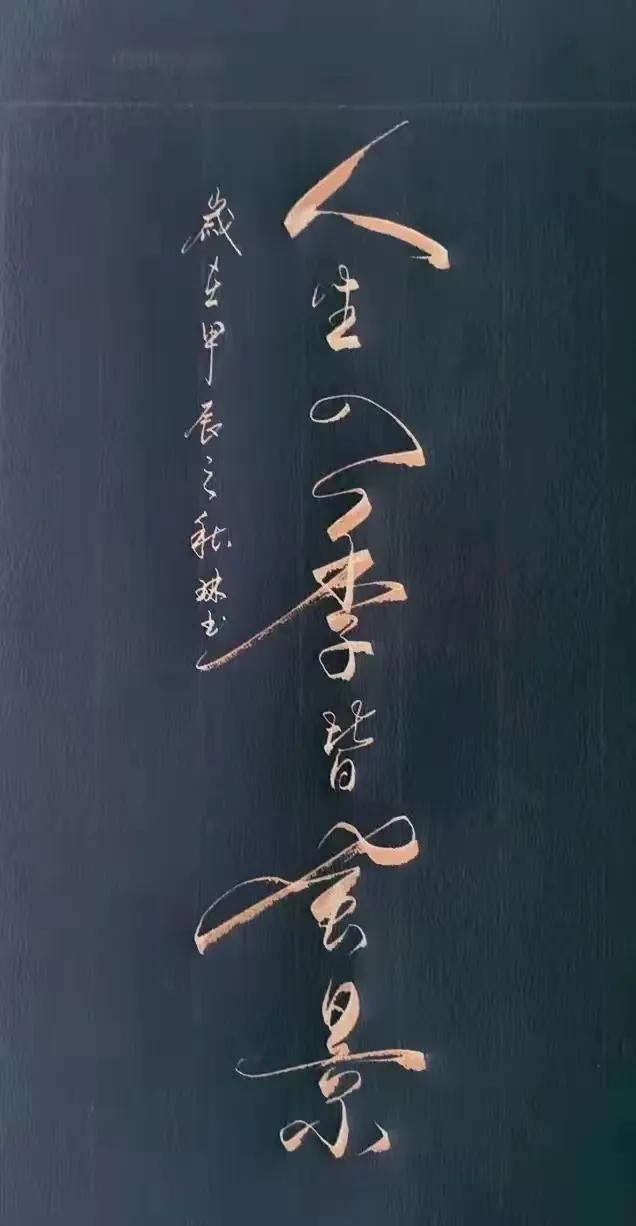 人生四季皆風景
歲在甲辰之秋琳书